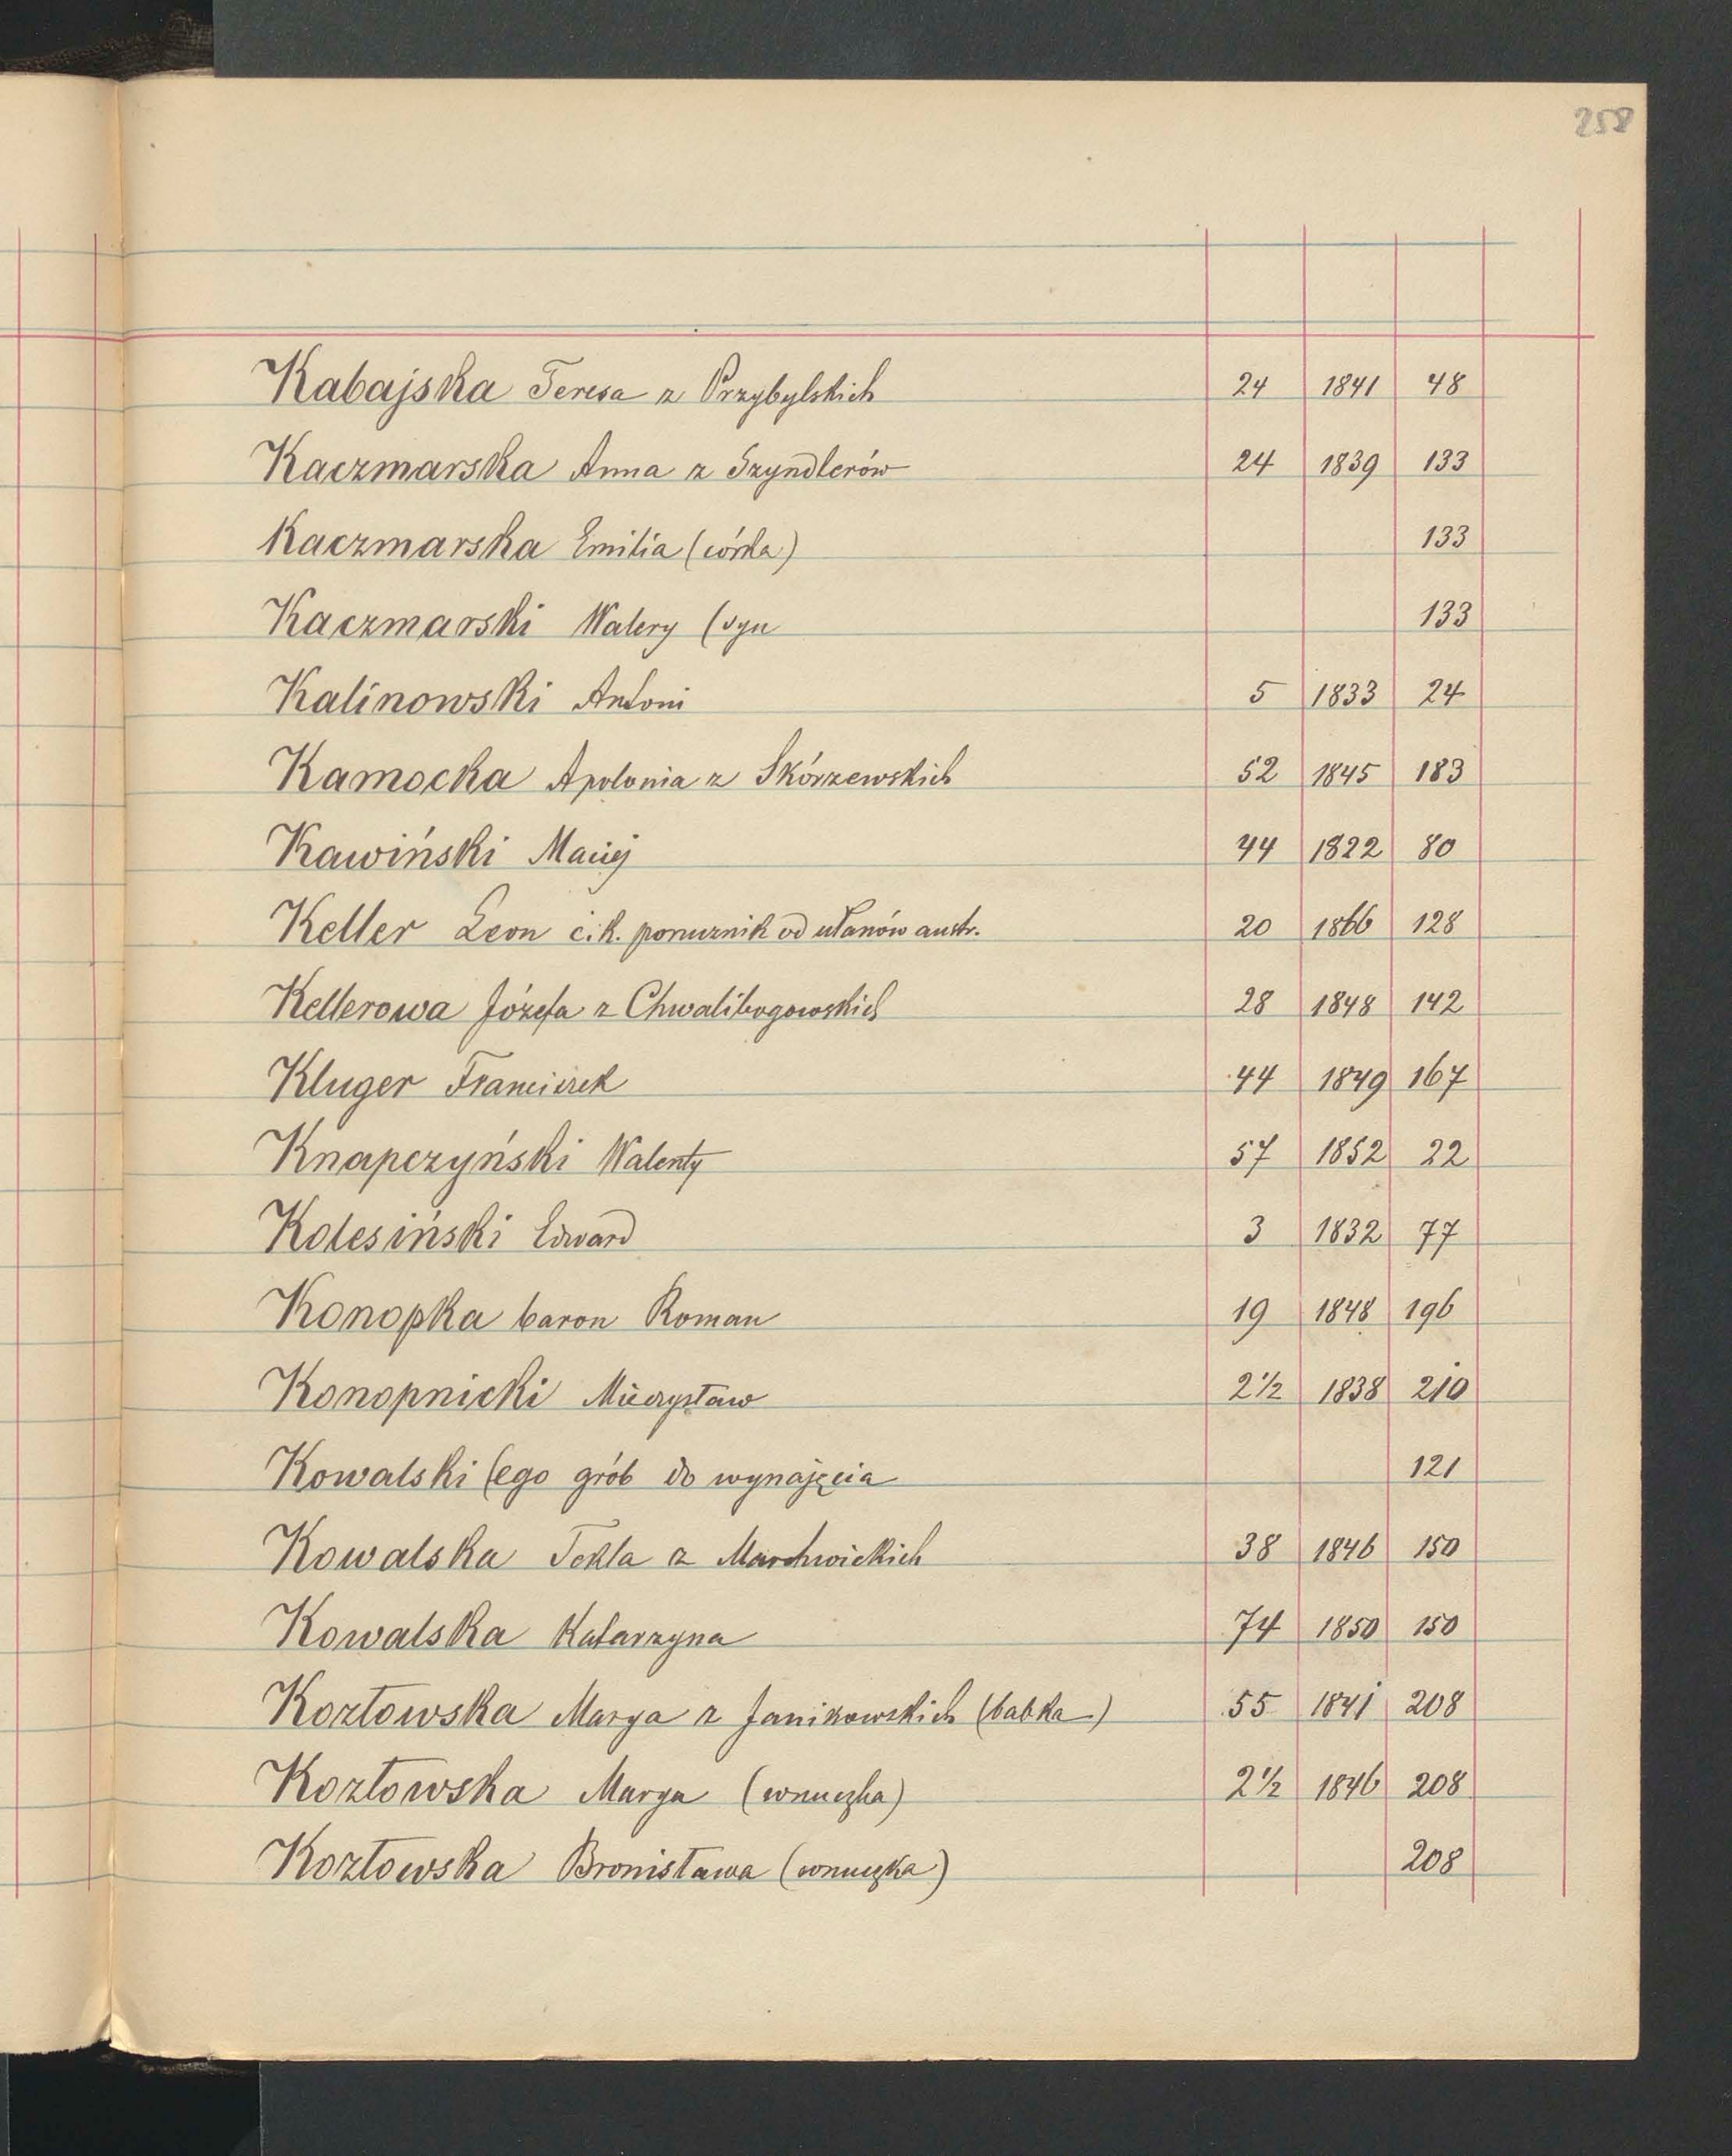 258
Kabajska Teresa z Przybylskich 24 1841 48
Kaczmarska Anna z Szyndlerów 24 1839 133
Kaczmarska Emilia (córka) 133
Kaczmarski Walery (syn 133
Kalinowski Antoni 5 1833 24
Kamocka Apolonia z Skórzewskich 52 1845 183
Kawiński Maciej 44 1822 80
Keller Leon c.k. porucznik od ułanów austr. 20 1866 128
Kellerowa Józefa z Chwalibogowskich 28 1848 142
Kluger Franciszek 44 1849 167
Knapczyński Walenty 57 1852 22
Kolesiński Edward 3 1832 77
Konopka baron Roman 19 1848 196
Konopnicki Mieczysław 2½ 1838 210
Kowalski (ego grób do wynajęcia 121
Kowalska Tekla z Marchwickich 38 1846 150
Kowalska Katarzyna 74 1850 150
Kozłowska Marya z Janikowskich (babka) 55 1841 208
Kozłowska Marya (wnuczka) 2½ 1846 208
Kozłowska Bronisława (wnuczka) 208